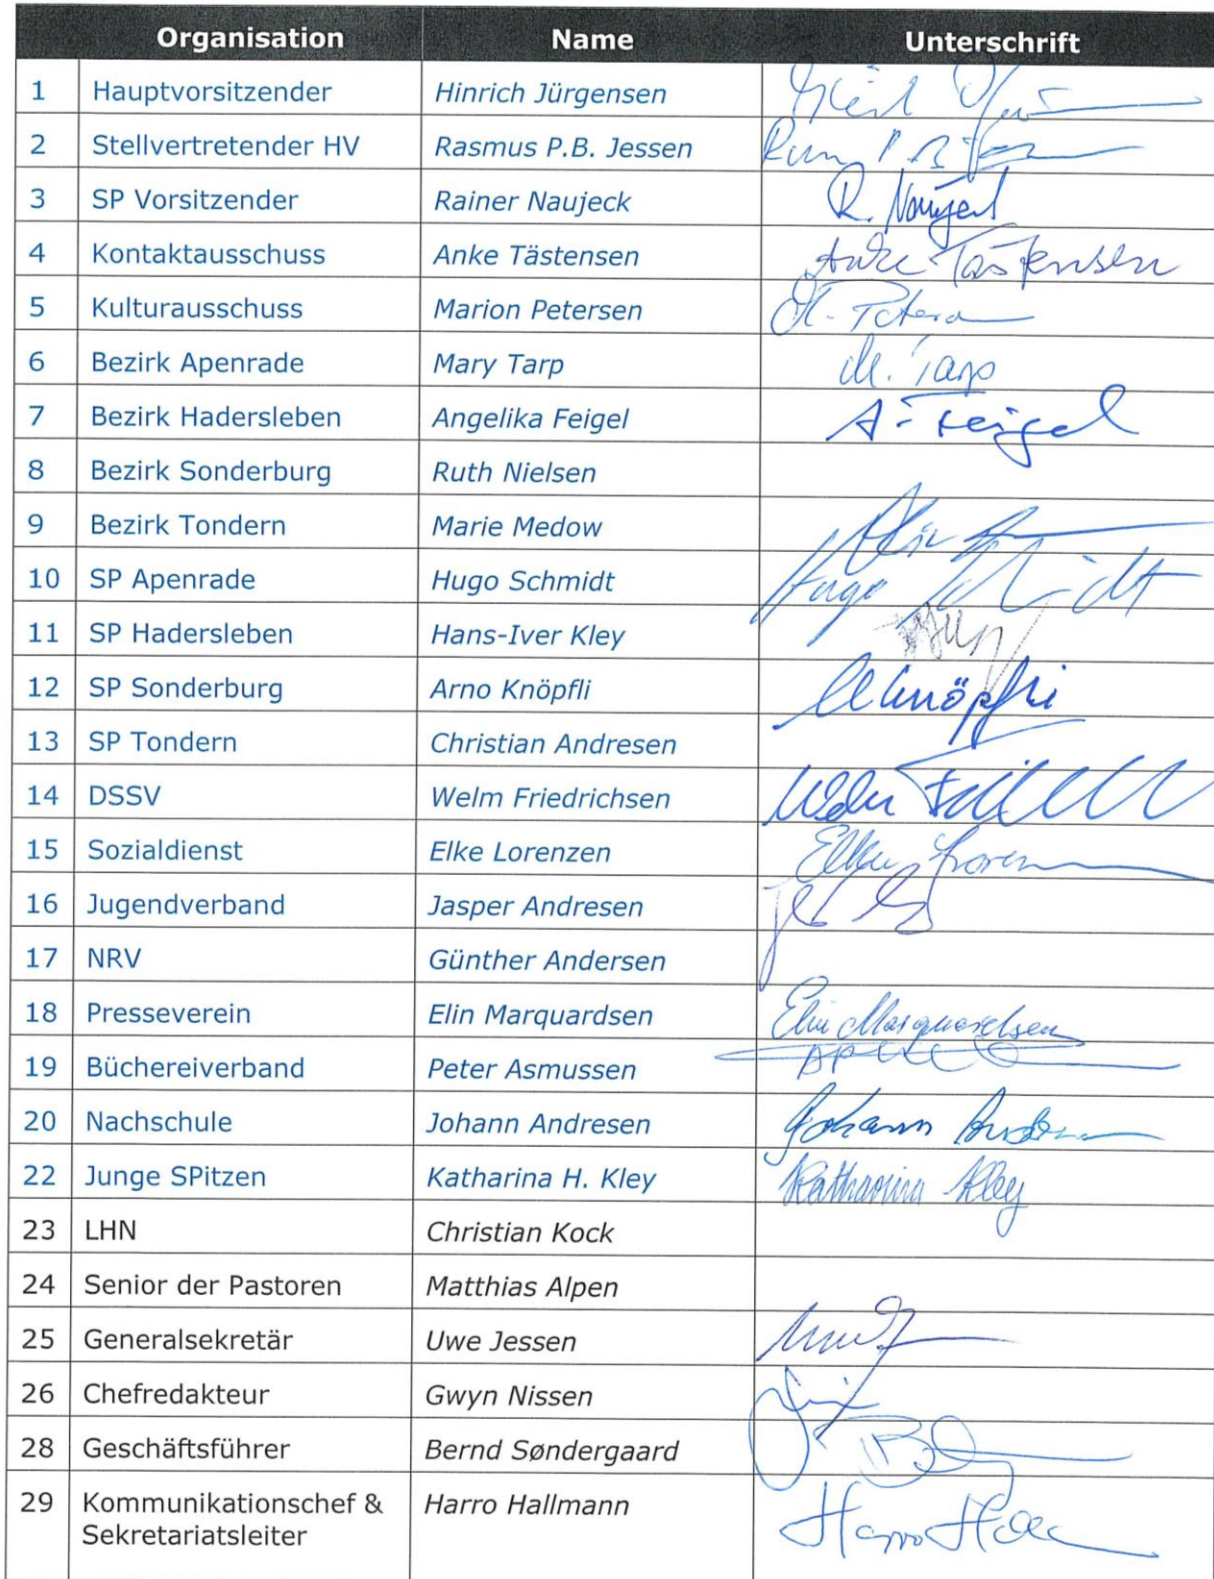 Organisation Name Unterschrift
1 Hauptvorsitzender Hinrich Jürgensen
2 Stellvertretender HV Rasmus P.B. Jessen
3 SP Vorsitzender Rainer Naujeck R. Naujeck
4 Kontaktausschuss Anke Tästensen Anke Tästensen
5 Kulturausschuss Marion Petersen M. Petersen
6 Bezirk Apenrade Mary Tarp M. Tarp
7 Bezirk Hadersleben Angelika Feigel A. Feigel
8 Bezirk Sonderburg Ruth Nielsen
9 Bezirk Tondern Marie Medow
10 SP Apenrade Hugo Schmidt Hugo Schmidt
11 SP Hadersleben Hans-Iver Kley
12 SP Sonderburg Arno Knöpfli AKnöpfli
13 SP Tondern Christian Andresen
14 DSSV Welm Friedrichsen
15 Sozialdienst Elke Lorenzen
16 Jugendverband Jasper Andresen
17 NRV Günther Andersen
18 Presseverein Elin Marquardsen Elin Marquardsen
19 Büchereiverband Peter Asmussen
20 Nachschule Johann Andresen Johann Andresen
22 Junge SPitzen Katharina H. Kley Katharina Kley
23 LHN Christian Kock
24 Senior der Pastoren Matthias Alpen
25 Generalsekretär Uwe Jessen
26 Chefredakteur Gwyn Nissen
28 Geschäftsführer Bernd Søndergaard
29 Kommunikationschef & Harro Hallmann Harro
Sekretariatsleiter